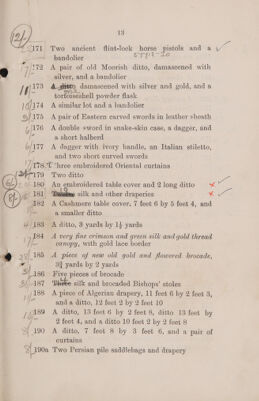 12/-
13
171 Two ancient flint-lock horse pistols and a
bandolier
172 A pair of old Moorish ditto, damascened with
silver, and a bandolier
173 A ditto damascened with silver and gold, and a
tortoiseshell powder flask
174 A similar lot and a bandolier
175 A pair of Eastern curved swords in leather sheath
176 A double sword in snake-skin case, a dagger, and
a short halberd
177 A dagger with ivory handle, an Italian stiletto,
and two short curved swords
178 Three embroidered Oriental curtains
179 Two ditto
180 An embroidered table cover and 2 long ditto
181 silk and other draperies
182 A Cashmere table cover, 7 feet 6 by 5 feet 4, and
a smaller ditto
183 A ditto, 3 yards by 1½ yards
184 A very fine crimson and green silk and gold thread
canopy, with gold lace border
185 A piece of new old gold and flowered brocade,
3¾ yards by 2 yards
186 Five pieces of brocade
187 silk and brocaded Bishops' stoles
188 A piece of Algerian drapery, 11 feet 6 by 2 feet 3,
and a ditto, 12 feet 2 by 2 feet 10
189 A ditto, 13 feet 6 by 2 feet 8, ditto 13 feet by
2 feet 4, and a ditto 10 feet 2 by 2 feet 8
190 A ditto, 7 feet 8 by 3 feet 6, and a pair of
curtains
190a Two Persian pile saddlebags and drapery